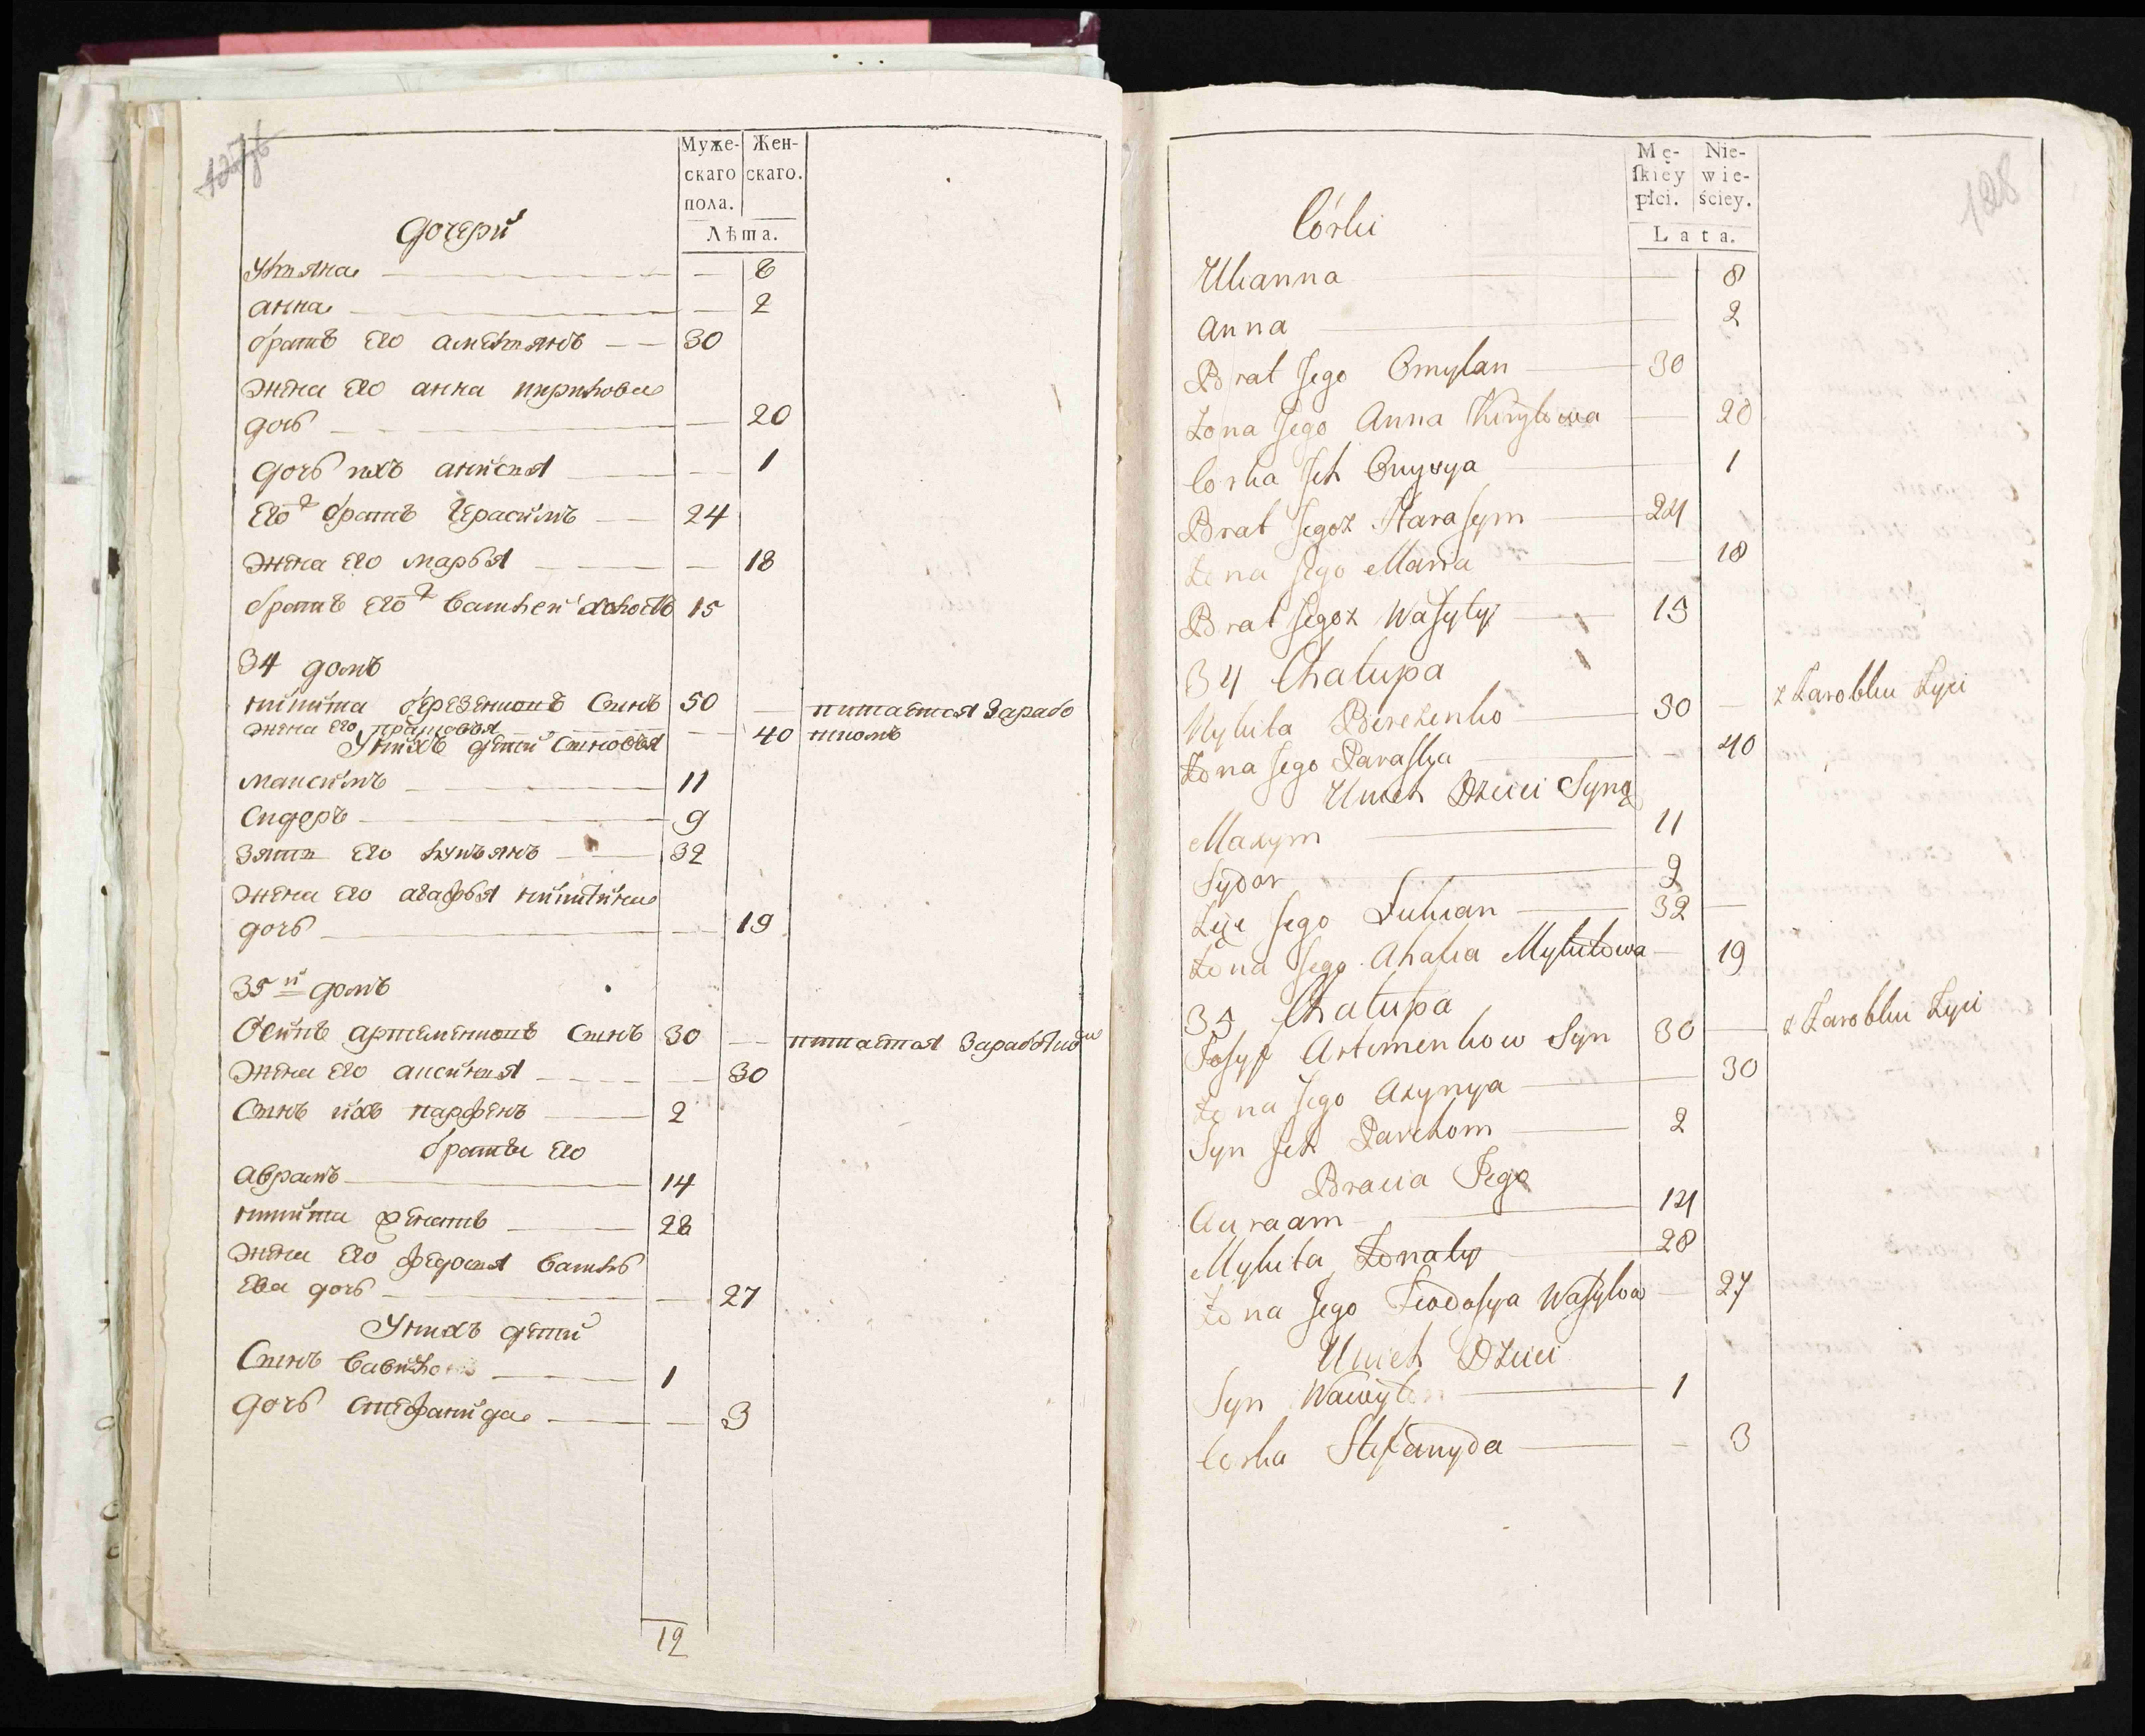 Муже- Жен-
скаго скаго.
пола.
Лѣта.
дочери
Уляна 8
анна 2
братъ его амелянъ 30
жена его анна кирилова
дочь 20
дочь ихъ анисия 1
его братъ Герасимъ 24
жена его марья 18
братъ его василей холостъ 15
34 домъ
никита березенковъ Синъ 50 питается Зарабо
жена его прасковья 40 ткомъ
У нихъ дети Синовья
максимъ 11
Сидоръ 9
Зять его лукьянъ 32
жена его агафья никитина
дочь 19
35й домъ
Осипъ артеменковъ Синъ 30 питается Заработком
жена его аксиния 30
Синъ ихъ парфенъ 2
братья его
аврамъ 14
никита женатъ 28
жена его федосия василь
ева дочь 27
У нихъ дети
Синъ вавило 1
дочь стефанида 3
12
128
Mę- Nie-
ſkiey wie-
płci. ściey.
Lata.
Córki
Ulianna 8
Anna 2
Brat Jego Omylan 30
Żona Jego Anna Kiryłowa 20
Corka Jch Onysya 1
Brat Jegoż Harasym 24
Żona Jego Maria 18
Brat Jegoż Wasyly 15
34 Chałupa
Nykita Berezenko 50 z Zarobku Życi
Żona Jego Paraska 40
U nich Dzieci Syny
Maxym 11
Sydor 9
Zięc Jego Lukian 32
Żona Jego Ahafia Mykitowa 19
35 Chałupa
Josyp Artemenkow Syn 30 z Zarobku Życi
Żona Jego Axynya 30
Syn Jch Parchom 2
Bracia Jego
Auraam 14
Mykita Żonaty 28
Żona Jego Feodosya Wasylow 27
U nich Dzieci
Syn Wawyło 1
Corka Stefanyda 3